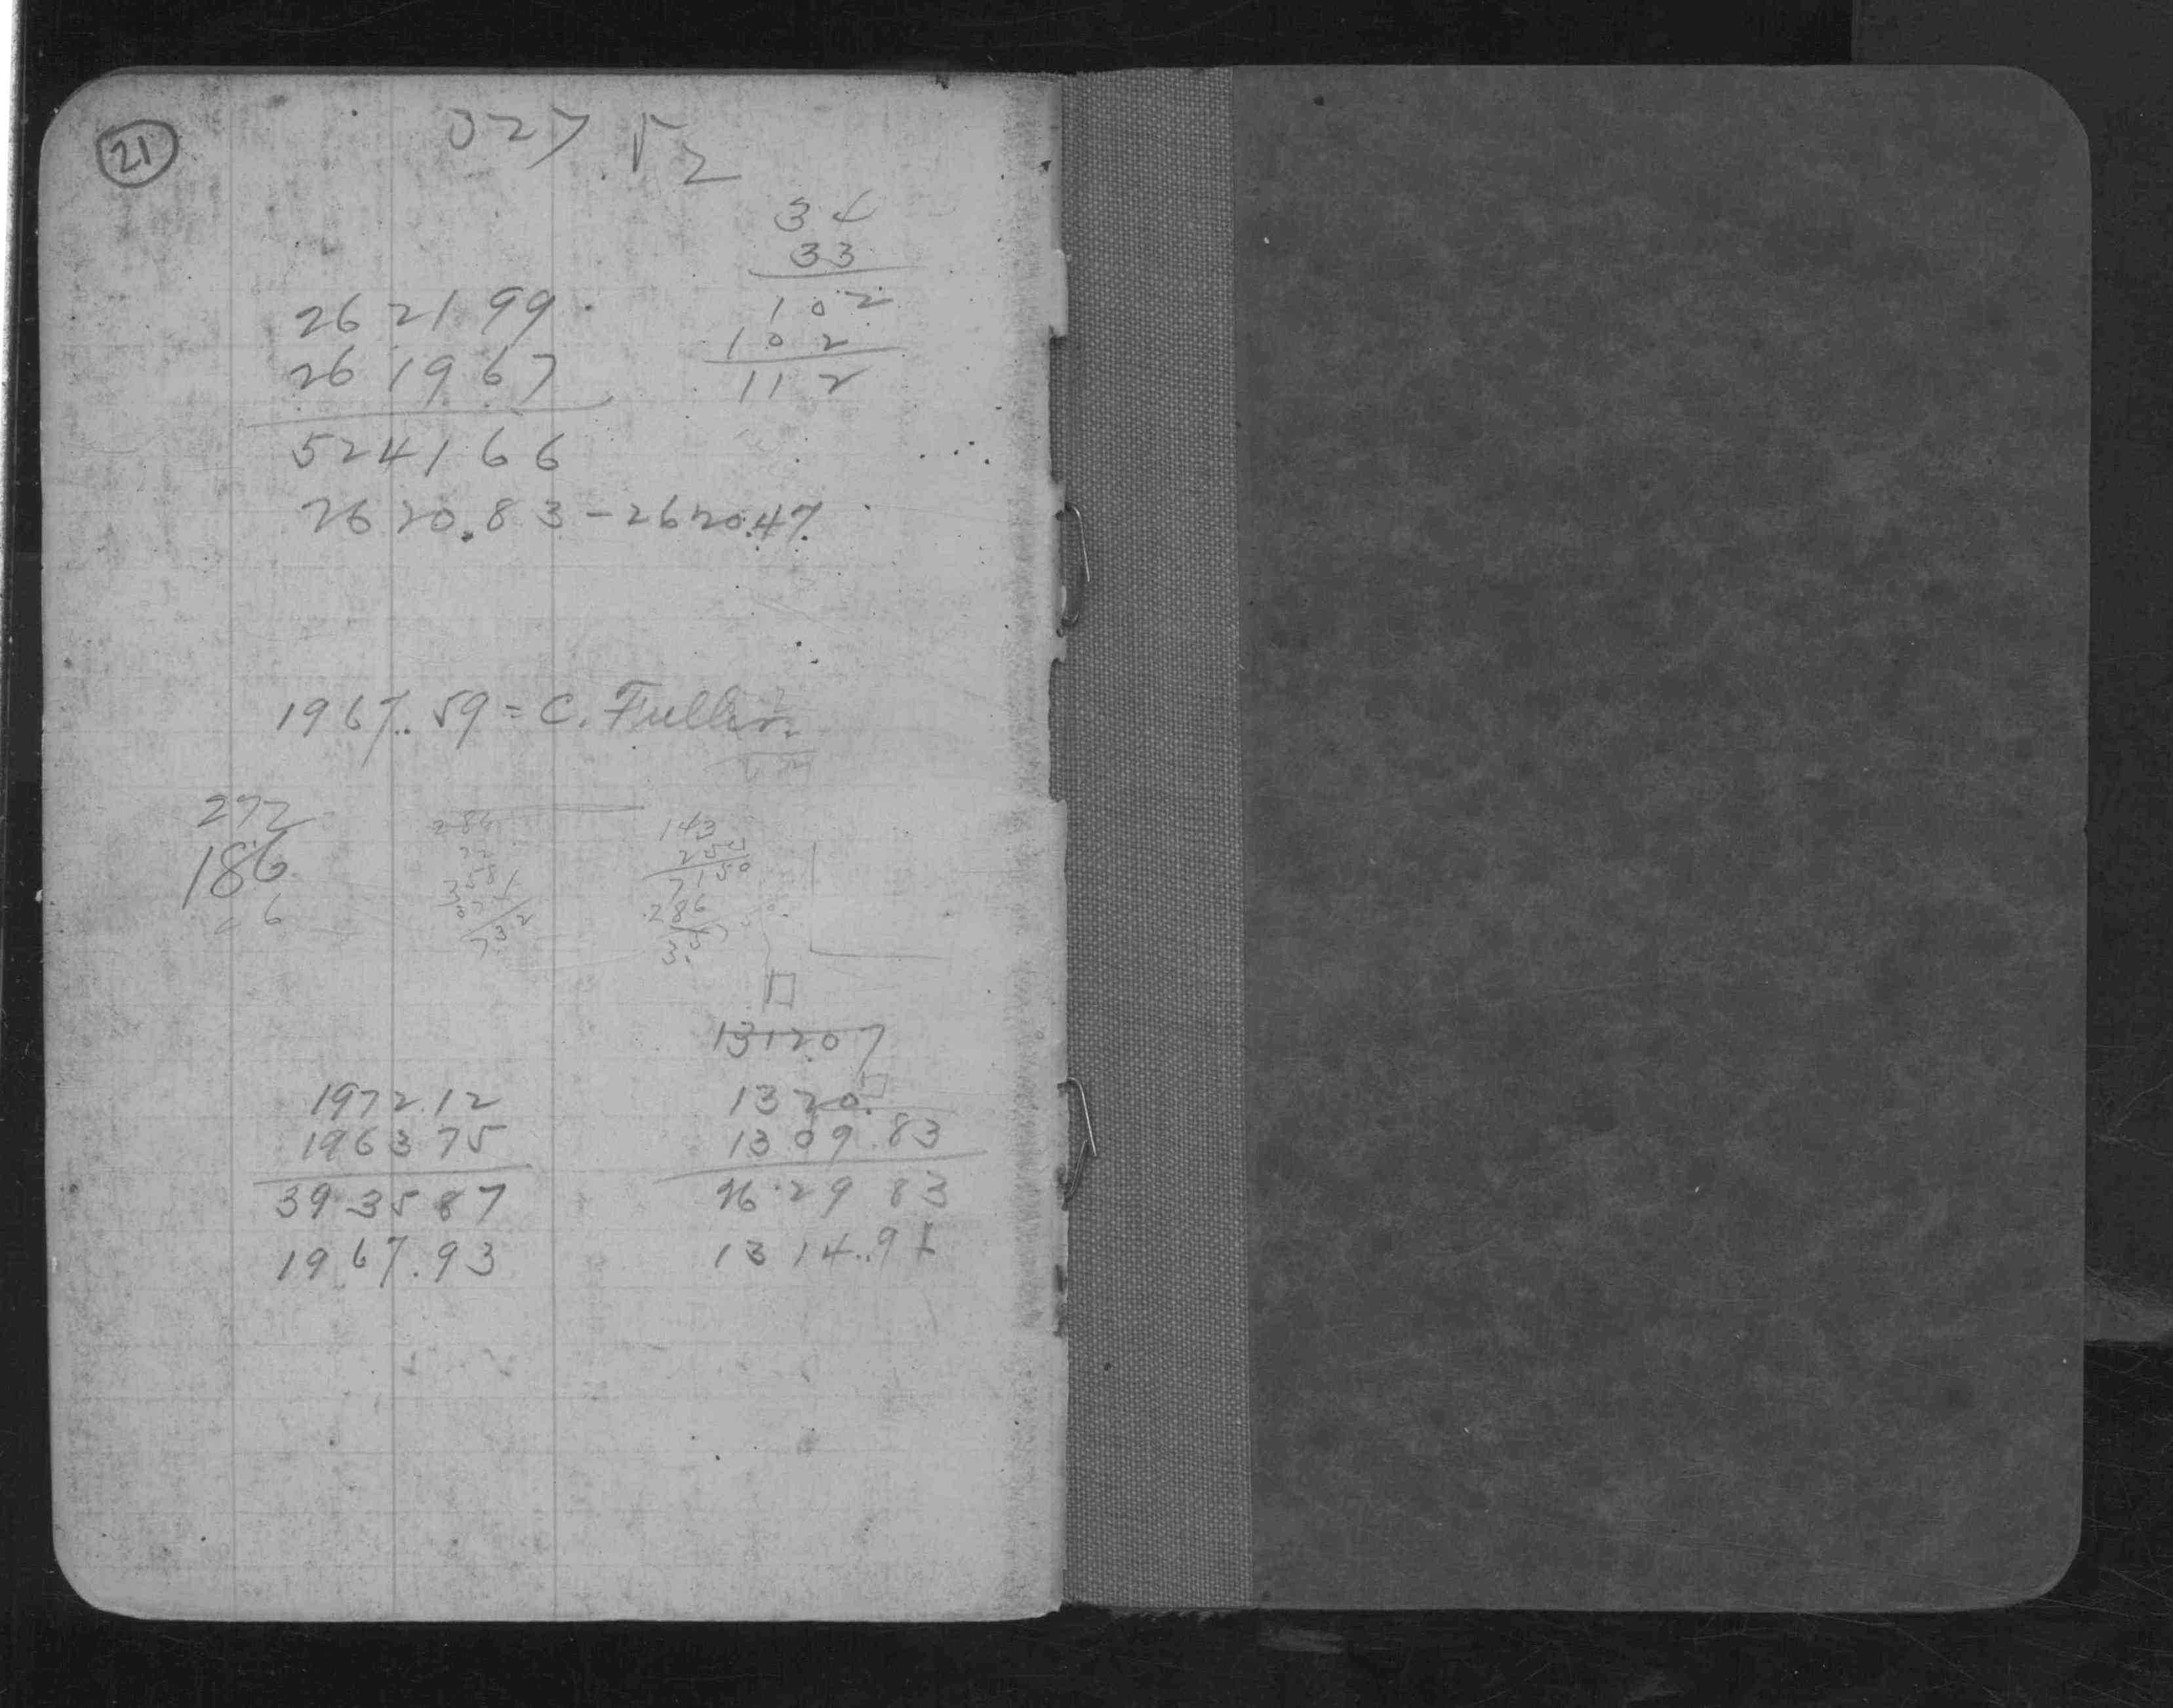 21
327.52
34
33
102
102
112
262199
261967
524166
2620.83-2620.47
1967.59=C. Fuller.
272
186
6
286
72
358
374
732
143
250
7150
286
35
131207
1972.12
1963 75
3935 87
1967.93
1320.
1309.83
26 29 83
1314.91